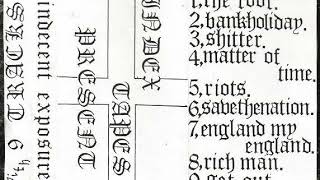 with 9 TRACKS
indecent exposure
PRESENT
TAPES
INDEX
2,bankholiday.
3,shitter.
4,matter of
time.
5,riots.
6,savethenation.
7,england my
england.
8,rich man.
9,get out